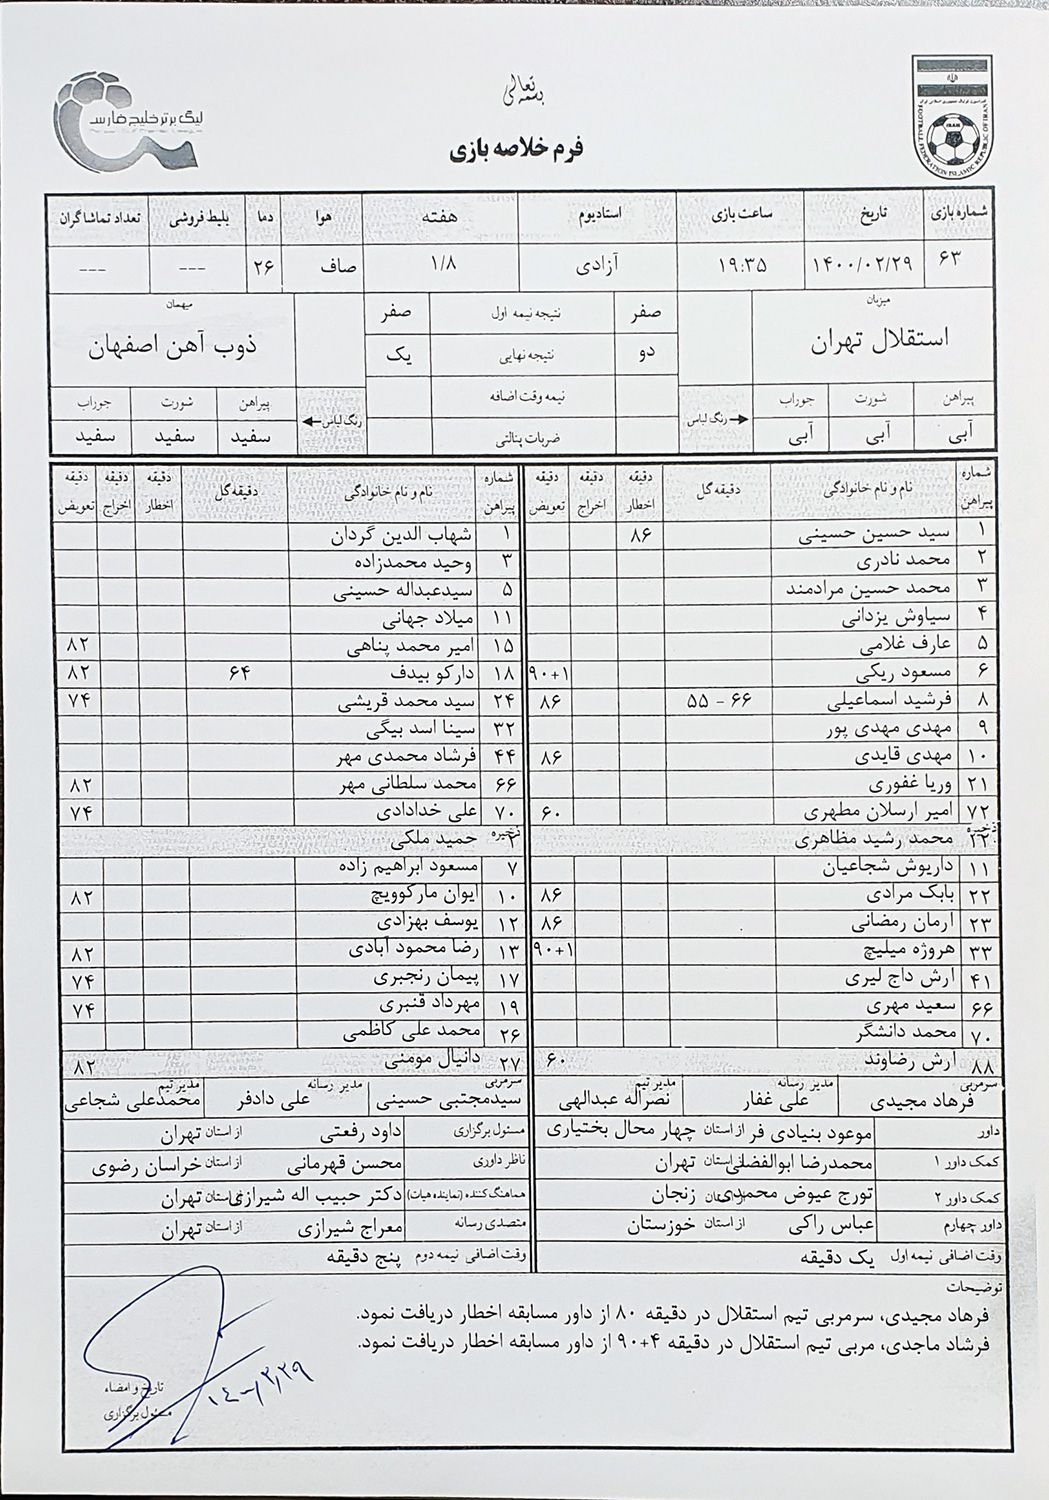 بسمه تعالی
لیگ برتر خلیج فارس
FOOTBALL FEDERATION ISLAMIC REPUBLIC OF IRAN
IRAN
فرم خلاصه بازی
شماره بازی تاریخ ساعت بازی استادیوم هفته هوا دما بلیط فروشی تعداد تماشاگران
۶۳ ۱۴۰۰/۰۲/۲۹ ۱۹:۳۵ آزادی ۱/۸ صاف ۲۶ --- ---
میزبان میهمان
استقلال تهران ذوب آهن اصفهان
صفر نتیجه نیمه اول صفر
دو نتیجه نهایی یک
نیمه وقت اضافه
ضربات پنالتی
پیراهن شورت جوراب رنگ لباس رنگ لباس پیراهن شورت جوراب
آبی آبی آبی سفید سفید سفید
شماره پیراهن نام و نام خانوادگی دقیقه گل دقیقه اخطار دقیقه اخراج دقیقه تعویض شماره پیراهن نام و نام خانوادگی دقیقه گل دقیقه اخطار دقیقه اخراج دقیقه تعویض
۱ سید حسین حسینی ۸۶ ۱ شهاب الدین گردان
۲ محمد نادری ۳ وحید محمدزاده
۳ محمد حسین مرادمند ۵ سیدعبداله حسینی
۴ سیاوش یزدانی ۱۱ میلاد جهانی
۵ عارف غلامی ۱۵ امیر محمد پناهی ۸۲
۶ مسعود ریکی ۹۰+۱ ۱۸ دارکو بیدف ۶۴ ۸۲
۸ فرشید اسماعیلی ۶۶ - ۵۵ ۸۶ ۲۴ سید محمد قریشی ۷۴
۹ مهدی مهدی پور ۳۲ سینا اسد بیگی
۱۰ مهدی قایدی ۸۶ ۴۴ فرشاد محمدی مهر
۲۱ وریا غفوری ۶۶ محمد سلطانی مهر ۸۲
۷۲ امیر ارسلان مطهری ۶۰ ۷۰ علی خدادادی ۷۴
ذخیره محمد رشید مظاهری ذخیره ۲ حمید ملکی
۱۱ داریوش شجاعیان ۷ مسعود ابراهیم زاده
۲۲ بابک مرادی ۸۶ ۱۰ ایوان مارکوویچ ۸۲
۲۳ آرمان رمضانی ۸۶ ۱۲ یوسف بهزادی
۳۳ هروژه میلیچ ۹۰+۱ ۱۳ رضا محمود آبادی ۸۲
۴۱ ارش داج لیری ۱۷ پیمان رنجبری ۷۴
۶۶ سعید مهری ۱۹ مهرداد قنبری ۷۴
۷۰ محمد دانشگر ۲۶ محمد علی کاظمی
۸۸ ارش رضاوند ۶۰ ۲۷ دانیال مومنی ۸۲
سرمربی فرهاد مجیدی مدیر رسانه علی غفار مدیر تیم نصراله عبدالهی سرمربی سیدمجتبی حسینی مدیر رسانه علی دادفر مدیر تیم محمدعلی شجاعی
داور موعود بنیادی فر از استان چهار محال بختیاری مسئول برگزاری داود رفعتی از استان تهران
کمک داور ۱ محمدرضا ابوالفضلی از استان تهران ناظر داوری محسن قهرمانی از استان خراسان رضوی
کمک داور ۲ تورج عیوض محمدی از استان زنجان هماهنگ کننده (نماینده هیات) دکتر حبیب اله شیرازی از استان تهران
داور چهارم عباس راکی از استان خوزستان متصدی رسانه معراج شیرازی از استان تهران
وقت اضافی نیمه اول یک دقیقه وقت اضافی نیمه دوم پنج دقیقه
توضیحات
فرهاد مجیدی، سرمربی تیم استقلال در دقیقه ۸۰ از داور مسابقه اخطار دریافت نمود.
فرشاد ماجدی، مربی تیم استقلال در دقیقه ۴+۹۰ از داور مسابقه اخطار دریافت نمود.
تاریخ و امضاء
مسئول برگزاری